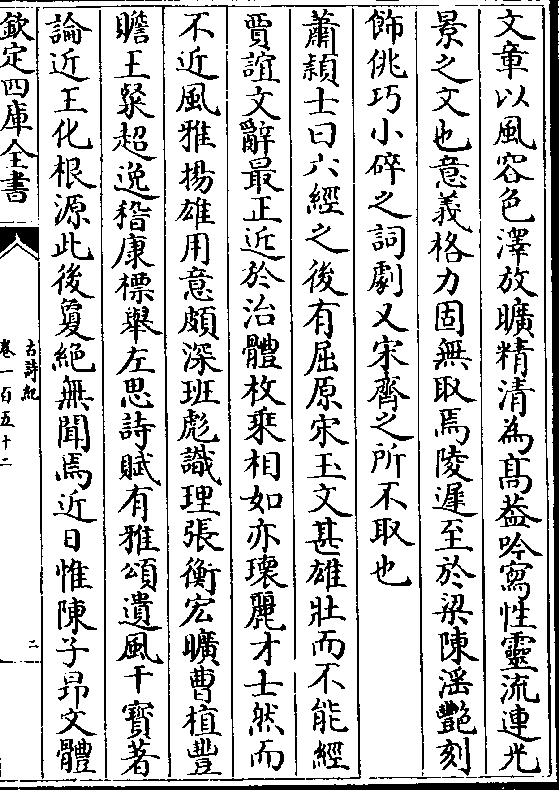 文章以風容色澤放曠精清為髙葢吟寫性靈流連光
景之文也意義格力固無取焉陵遲至於梁陳滛艶刻
飾佻巧小碎之詞劇又宋齊之所不取也
蕭頴士曰六經之後有屈原宋玉文甚雄壯而不能經
賈誼文辭最正近於治體枚乗相如亦瓌麗才士然而
不近風雅揚雄用意頗深班彪識理張衡宏曠曹植豐
贍王粲超逸嵇康標舉左思詩賦有雅頌遺風干寶著
論近王化根源此後夐絶無聞焉近日惟陳子昻文體
欽定四庫全書
古詩紀
卷一百五十二
二